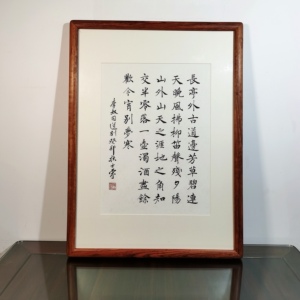 長亭外古道邊芳草碧連
天晚風拂柳笛聲殘夕陽
山外山天之涯地之角知
交半零落一壺濁酒盡餘
歡今宵別夢寒
李叔同送別癸卯秋